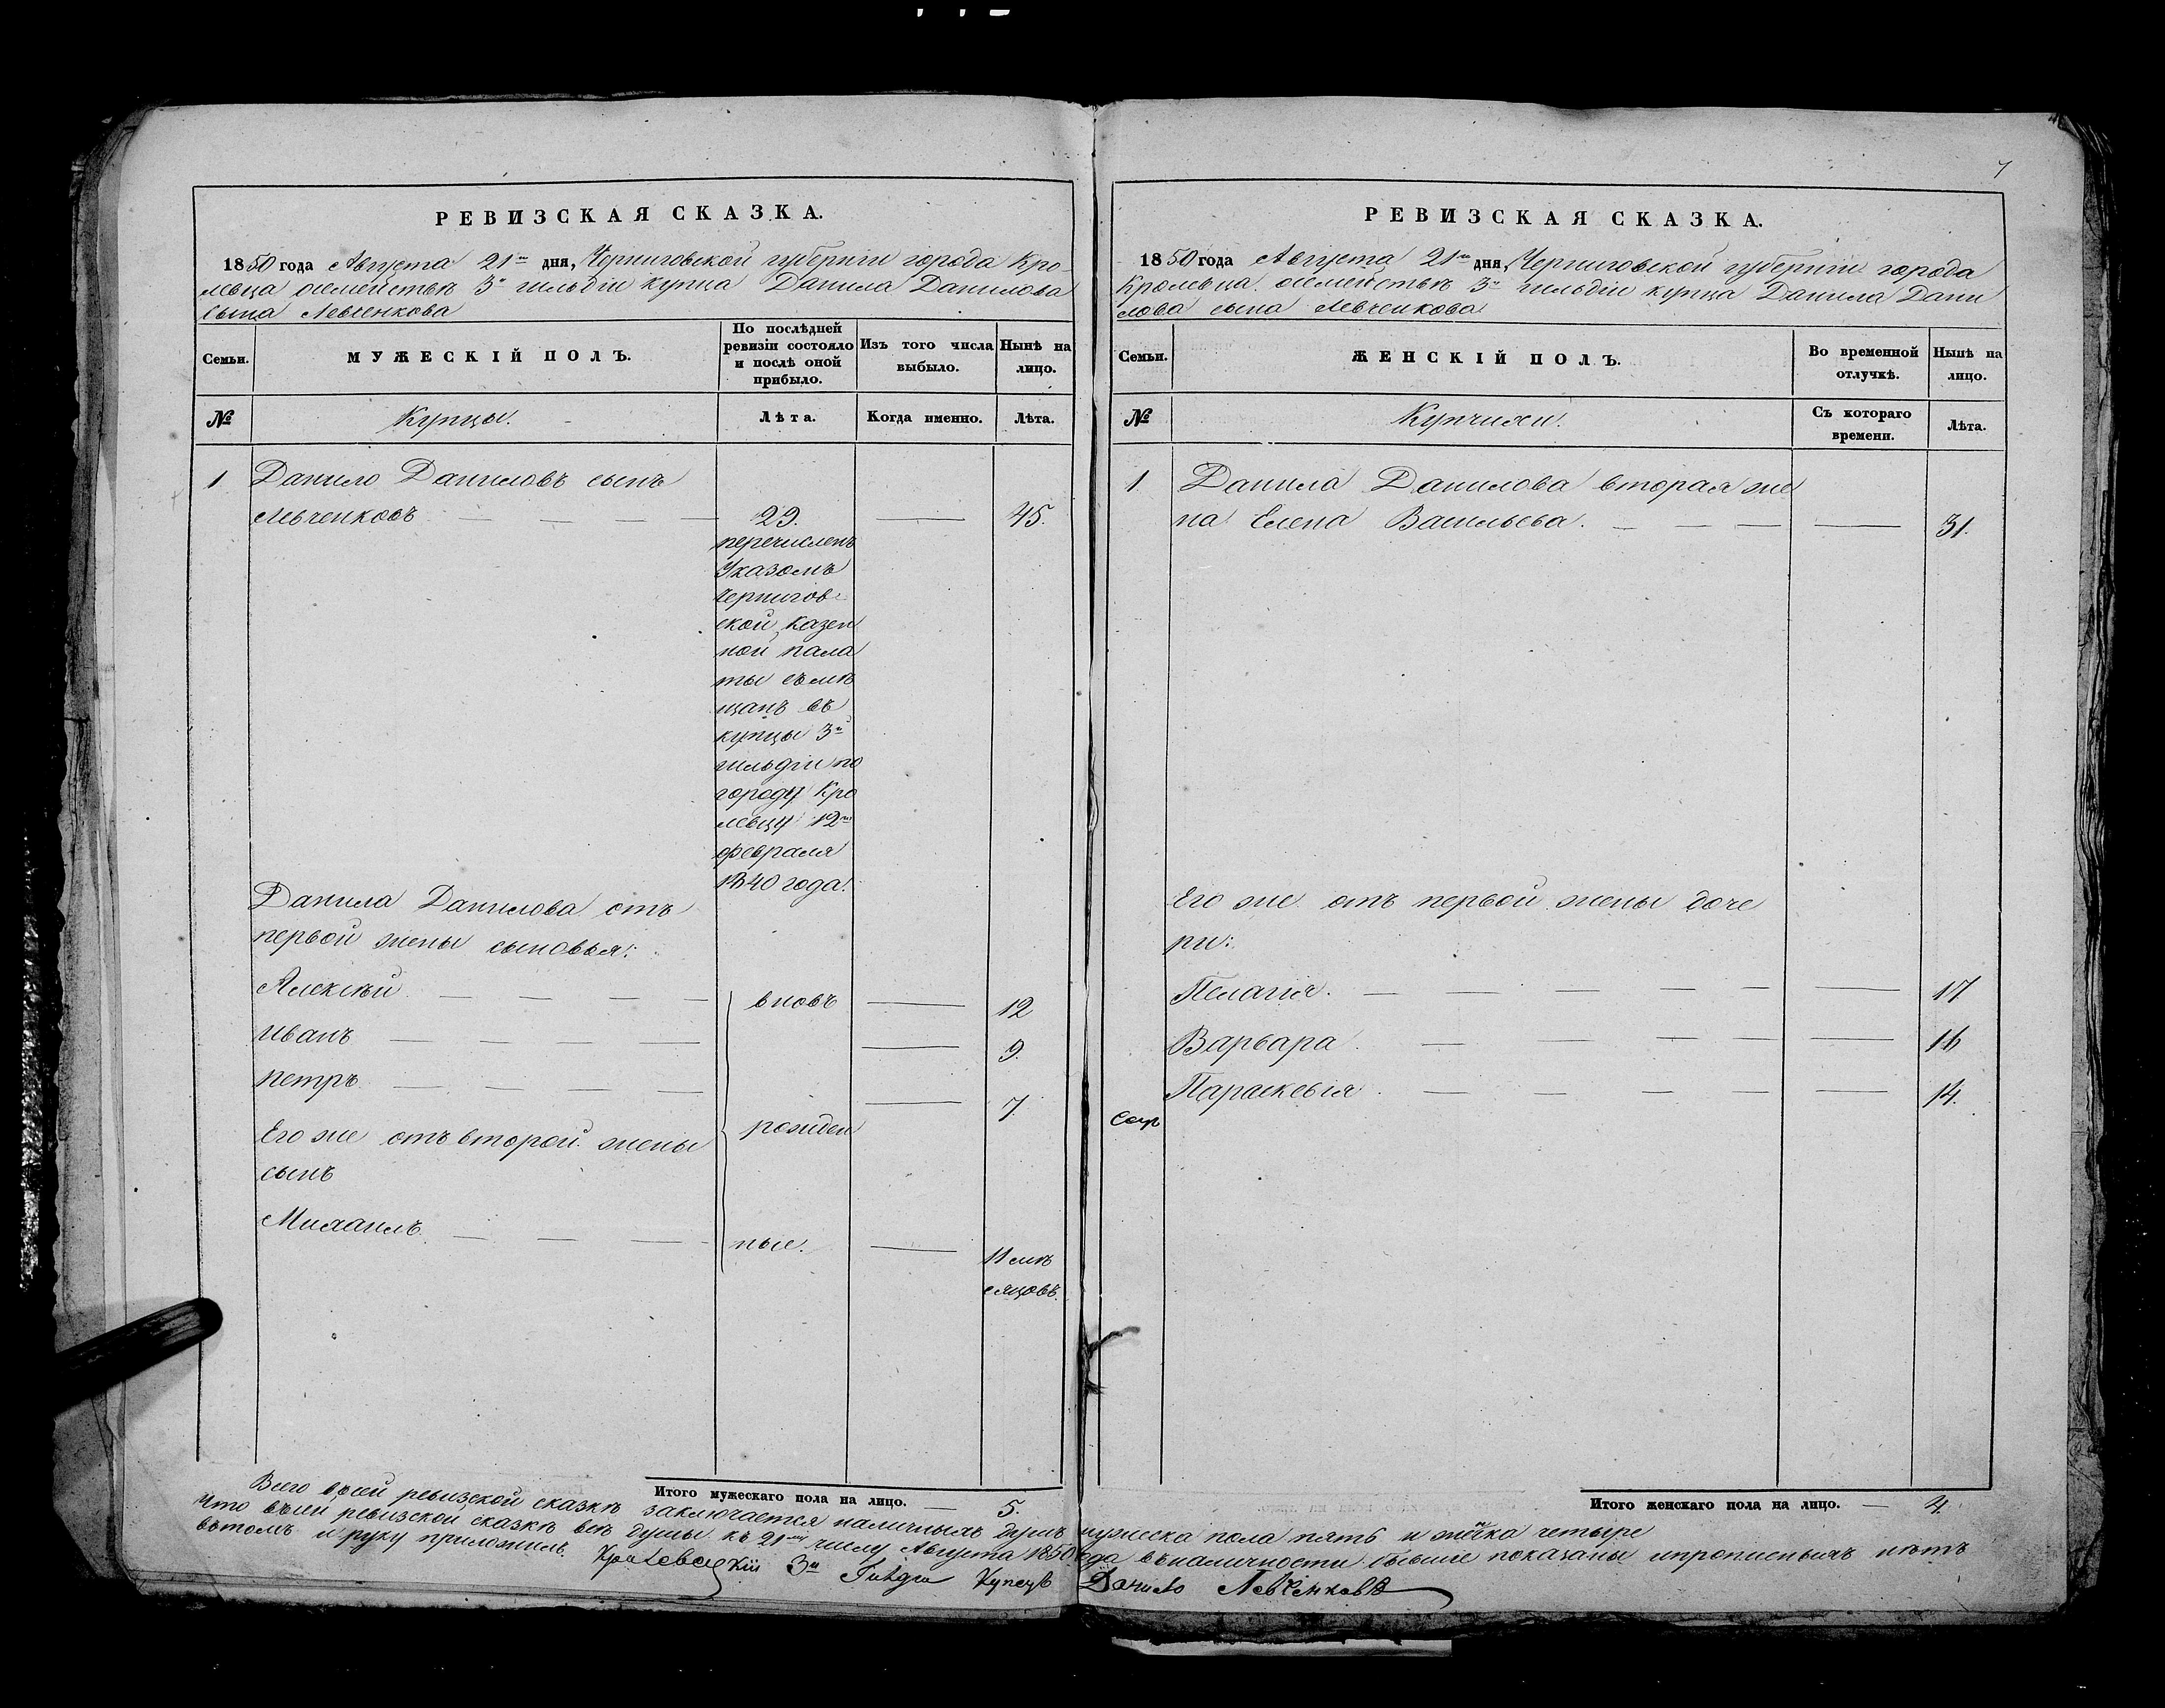 7
РЕВИЗСКАЯ СКАЗКА.
1850 года Августа 21го дня, Черниговской губернiи города Кро-
левца о семействѣ 3й гильдiи купца Данила Данилова
сына Левченкова
Семьи.
МУЖЕСКIЙ ПОЛЪ.
По послѣдней
ревизiи состояло
и послѣ оной
прибыло.
Изъ того числа
выбыло.
Нынѣ на
лицо.
№
Купцы.
Лѣта.
Когда именно.
Лѣта.
1
Данило Даниловъ сынъ
Левченковъ
29.
45.
перечисленъ
Указомъ
Чернигов
ской казен
ной пала
ты съ мѣ
щанъ въ
купцы 3й
гильдiи по
городу Кро
левцу 12го
февраля
1840 года.
Данила Данилова отъ
первой жены сыновья:
Алексѣй
вновь
12
Иванъ
9.
Петръ
7.
рожден
Его же отъ второй жены
сынъ
Михаилъ
ные.
11 мѣ
сяцовъ.
Итого мужескаго пола на лицо. — 5.
РЕВИЗСКАЯ СКАЗКА.
1850 года Августа 21го дня, Черниговской губернiи города
Кролевца о семействѣ 3й гильдiи купца Данила Дани
лова сына Левченкова
Семьи.
ЖЕНСКIЙ ПОЛЪ.
Во временной
отлучкѣ.
Нынѣ на
лицо.
№
Купчихи.
Съ котораго
времени.
Лѣта.
1.
Данила Данилова вторая же
на Елена Васильева.
31.
Его же отъ первой жены доче
ри:
Пелагiя.
17
Варвара.
16
Параскевiя.
14.
Итого женскаго пола на лицо. — 4.
Всего въ сей ревизской сказкѣ заключается наличныхъ душъ мужеска пола пять и женска четыре
что въ сей ревизской сказкѣ всѣ души къ 21му числу Августа 1850 года въ наличности бывшiе показаны и прописныхъ нѣтъ
въ томъ и руку приложилъ. Кролевецкiй 3й Гилдiи Купецъ Данило Левченковъ